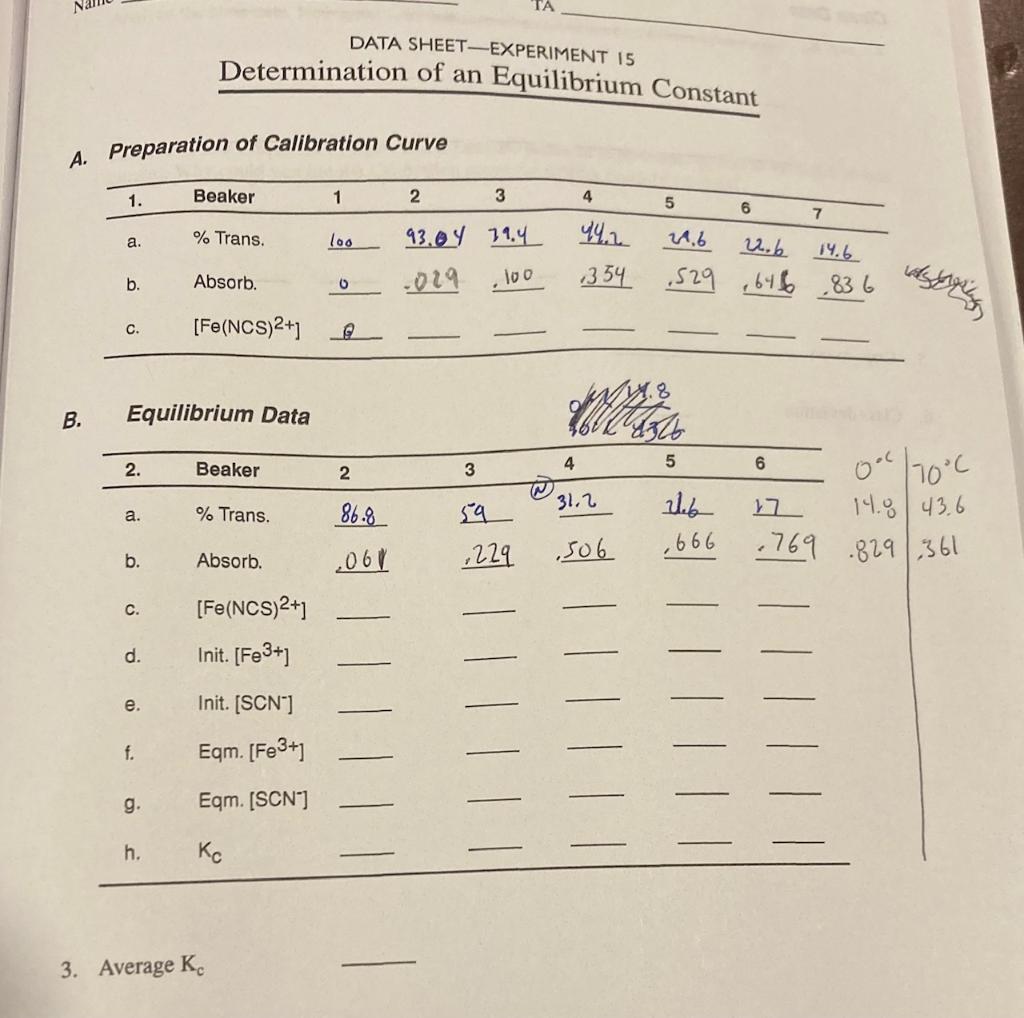 Name
TA
DATA SHEET—EXPERIMENT 15
Determination of an Equilibrium Constant
A. Preparation of Calibration Curve
1. Beaker 1 2 3 4 5 6 7
a. % Trans. 100 93.04 79.4 44.2 29.6 22.6 14.6
b. Absorb. 0 .029 .100 .354 .529 .646 .836
c. [Fe(NCS)2+] 0
B. Equilibrium Data
2. Beaker 2 3 4 5 6 0°C 70°C
a. % Trans. 86.8 59 31.2 21.6 17 14.8 43.6
b. Absorb. .061 .229 .506 .666 .769 .829 .361
c. [Fe(NCS)2+]
d. Init. [Fe3+]
e. Init. [SCN-]
f. Eqm. [Fe3+]
g. Eqm. [SCN-]
h. Kc
3. Average Kc